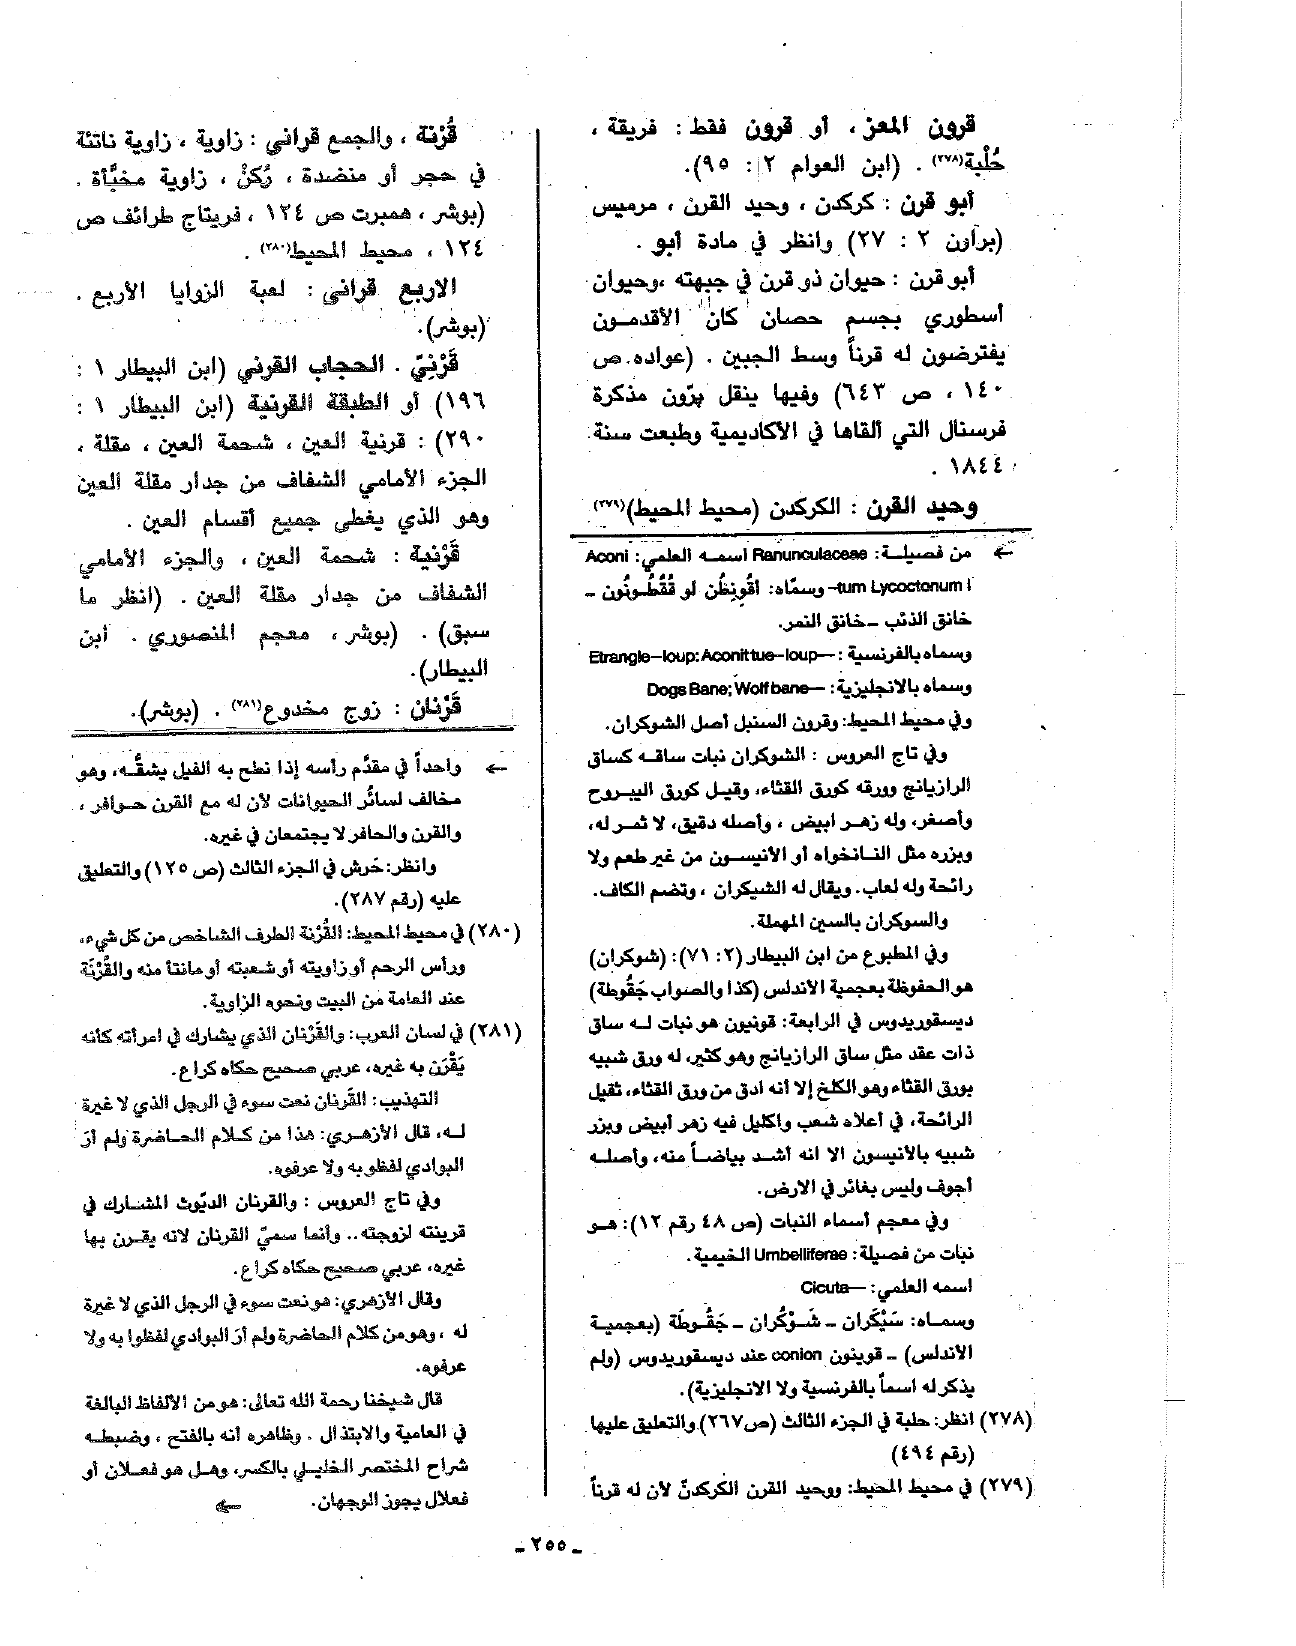 قرون المعز ، أو قرون فقط : فريقة ،
حُلْبة(٢٧٨) . (ابن العوام ٢ : ٩٥).
أبو قرن : كركدن ، وحيد القرن ، مرميس
(براون ٢ : ٢٧) وانظر في مادة أبو .
أبو قرن : حيوان ذو قرن في جبهته ،وحيوان
أسطوري بجسم حصان كان الأقدمون
يفترضون له قرناً وسط الجبين . (عواده ص
١٤٠ ، ص ٦٤٣) وفيها ينقل برّون مذكرة
فرسنال التي ألقاها في الأكاديمية وطبعت سنة
١٨٤٤ .
وحيد القرن : الكركدن (محيط المحيط)(٢٧٩)
← من فصيلة: Ranunculaceae اسمه العلمي: Aconi
tum Lycoctonum l– وسمّاه: أقُونِطُن لو قُقْطُونُون –
خانق الذئب – خانق النمر.
وسماه بالفرنسية :– Etrangle–loup: Aconittue–loup
وسماه بالانجليزية: – Dogs Bane; Wolf bane
وفي محيط المحيط: وقرون السنبل أصل الشوكران.
وفي تاج العروس : الشوكران نبات ساقه كساق
الرازيانج وورقه كورق القثاء، وقيل كورق اليبروح
وأصغر، وله زهر ابيض ، وأصله دقيق، لا ثمر له،
وبزره مثل النانخواه أو الأنيسون من غير طعم ولا
رائحة وله لعاب. ويقال له الشيكران ، وتضم الكاف.
والسوكران بالسين المهملة.
وفي المطبوع من ابن البيطار (٢: ٧١): (شوكران)
هو الحفوظة بعجمية الأندلس (كذا والصواب جَقُوطة)
ديسقوريدوس في الرابعة: قونيون هو نبات له ساق
ذات عقد مثل ساق الرازيانج وهو كثير، له ورق شبيه
بورق القثاء وهو الكلخ إلا أنه ادق من ورق القثاء، ثقيل
الرائحة، في أعلاه شعب واكليل فيه زهر أبيض وبزر
شبيه بالأنيسون الا انه أشد بياضاً منه، وأصله
أجوف وليس بغائر في الارض.
وفي معجم أسماء النبات (ص ٤٨ رقم ١٢): هو
نبات من فصيلة: Umbelliferae الخيمية.
اسمه العلمي: – Cicuta
وسماه: سَيْكَران – شَوْكُران – جَقُوطَة (بعجمية
الأندلس) – قوينون conion عند ديسقوريدوس (ولم
يذكر له اسماً بالفرنسية ولا الانجليزية).
(٢٧٨) انظر: حلبة في الجزء الثالث (ص٢٦٧) والتعليق عليها
(رقم ٤٩٤)
(٢٧٩) في محيط المحيط: ووحيد القرن الكركدنّ لأن له قرناً
قُرْنة ، والجمع قراني : زاوية ، زاوية ناتئة
في حجر أو منضدة ، رُكنْ ، زاوية مخبَّأة .
(بوشر ، همبرت ص ١٢٤ ، فريتاج طرائف ص
١٢٤ ، محيط المحيط(٢٨٠) .
الاربع قراني : لعبة الزوايا الأربع .
(بوشر).
قَرْنِيّ . الحجاب القرني (ابن البيطار ١ :
١٩٦) أو الطبقة القرنية (ابن البيطار ١ :
٢٩٠) : قرنية العين ، شحمة العين ، مقلة ،
الجزء الأمامي الشفاف من جدار مقلة العين
وهو الذي يغطي جميع أقسام العين .
قَرْنية : شحمة العين ، والجزء الأمامي
الشفاف من جدار مقلة العين . (انظر ما
سبق) . (بوشر ، معجم المنصوري . ابن
البيطار).
قَرْنان : زوج مخدوع(٢٨١) . (بوشر).
← واحداً في مقدَّم رأسه إذا نطح به الفيل يشقُّه، وهو
مخالف لسائر الحيوانات لأن له مع القرن حوافر ،
والقرن والحافر لا يجتمعان في غيره.
وانظر: خَرش في الجزء الثالث (ص ١٢٥) والتعليق
عليه (رقم ٢٨٧).
(٢٨٠) في محيط المحيط: القُرْنة الطرف الشاخص من كل شيء،
ورأس الرحم أو زاويته أو شعبته أو مانتأ منه والقُرْنَة
عند العامة من البيت ونحوه الزاوية.
(٢٨١) في لسان العرب: والقَرْنان الذي يشارك في امرأته كأنه
يَقْرَن به غيره، عربي صحيح حكاه كراع.
التهذيب: القَرنان نعت سوء في الرجل الذي لا غيرة
له، قال الأزهري: هذا من كلام الحاضرة ولم أرَ
البوادي لفظو به ولا عرفوه.
وفي تاج العروس : والقرنان الديّوث المشارك في
قرينته لزوجته.. وأنما سميّ القرنان لانه يقرن بها
غيره، عربي صحيح حكاه كراع.
وقال الأزهري: هو نعت سوء في الرجل الذي لا غيرة
له ، وهو من كلام الحاضرة ولم أرَ البوادي لفظوا به ولا
عرفوه.
قال شيخنا رحمة الله تعالى: هو من الألفاظ البالغة
في العامية والابتذال . وظاهره أنه بالفتح ، وضبطه
شراح المختصر الخليلي بالكسر، وهل هو فعلان أو
فعلال يجوز الوجهان. ←
– ٢٥٥ –